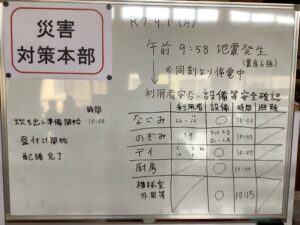 災害
対策本部
R7.9.1（月）
午前 9:58 地震発生
（震度6強）
※同刻より停電中
利用者安否・設備等安全確認
利用者 設備 時間 避難
なごみ ○ 10:05
のぞみ 10:03
デイ ○
厨房 ○
機械室
外周等 ○ 10:15
時間
炊き出し準備開始 10:06
盛付け開始
配膳完了